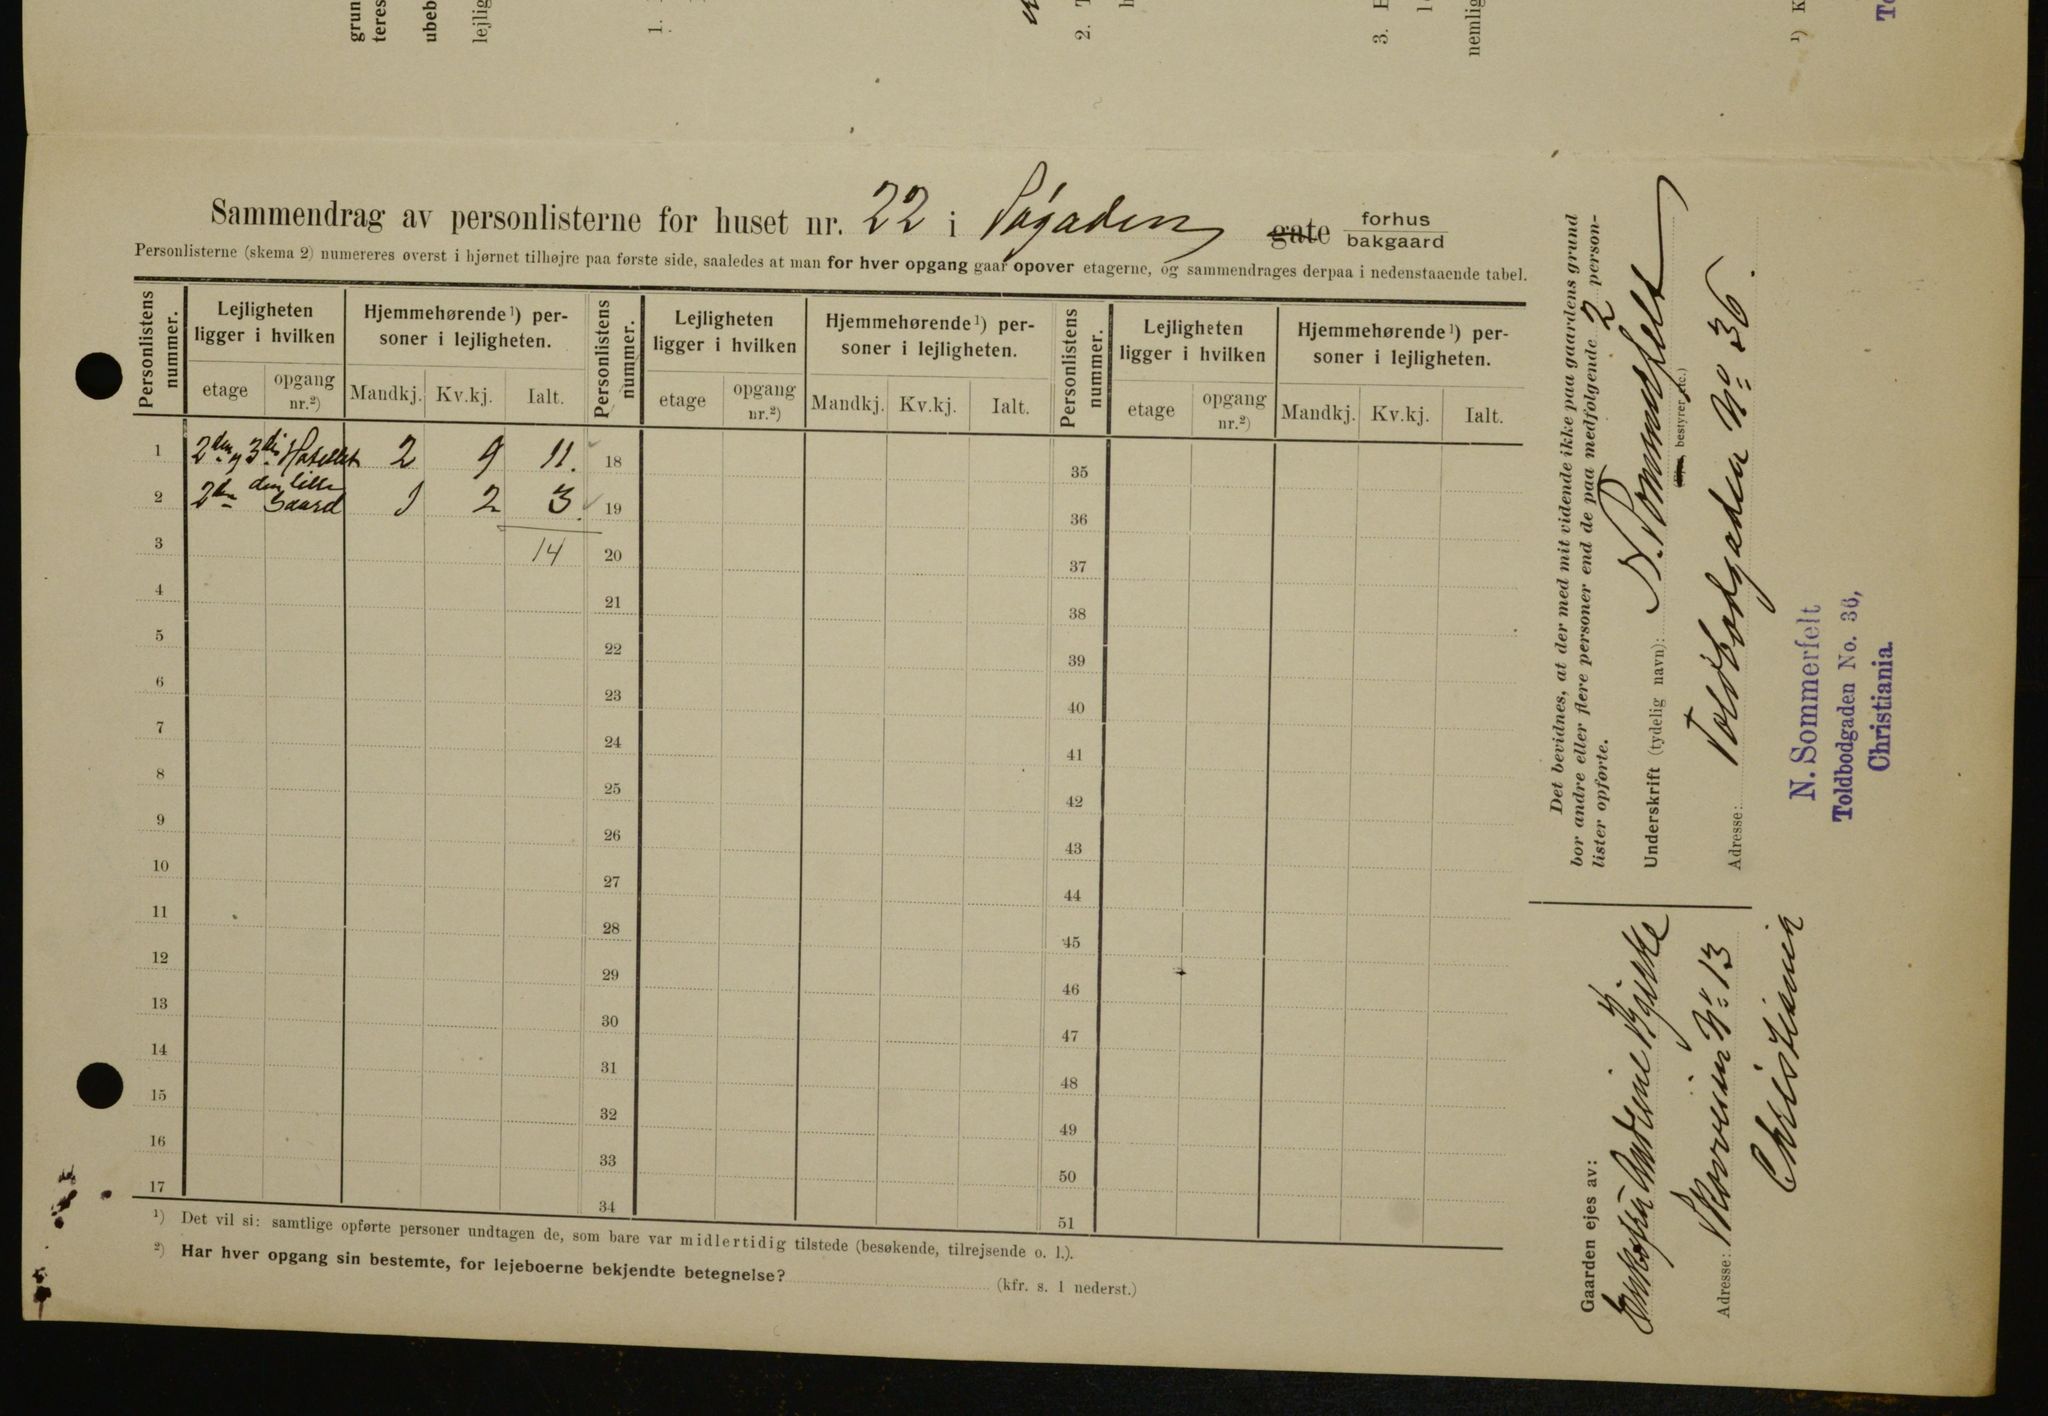 grun
teres
ubeb
lejlig
1.
2. T
3. E
nemlig
¹) K
To
Sammendrag av personlisterne for huset nr. 22 i Søgaden gate forhus bakgaard
Personlisterne (skema 2) numereres øverst i hjørnet tilhøjre paa første side, saaledes at man for hver opgang gaar opover etagerne, og sammendrages derpaa i nedenstaaende tabel.
Personlistens nummer. Lejligheten ligger i hvilken Hjemmehørende¹) personer i lejligheten. Personlistens nummer. Lejligheten ligger i hvilken Hjemmehørende¹) personer i lejligheten. Personlistens nummer. Lejligheten ligger i hvilken Hjemmehørende¹) personer i lejligheten.
etage opgang nr.²) Mandkj. Kv.kj. Ialt. etage opgang nr.²) Mandkj. Kv.kj. Ialt. etage opgang nr.²) Mandkj. Kv.kj. Ialt.
1 2den og 3die Hotellet 2 9 11. 18 35
2 2den den lille Gaard 1 2 3. 19 36
3 14 20 37
4 21 38
5 22 39
6 23 40
7 24 41
8 25 42
9 26 43
10 27 44
11 28 45
12 29 46
13 30 47
14 31 48
15 32 49
16 33 50
17 34 51
¹) Det vil si: samtlige opførte personer undtagen de, som bare var midlertidig tilstede (besøkende, tilrejsende o. l.).
²) Har hver opgang sin bestemte, for lejeboerne bekjendte betegnelse? (kfr. s. 1 nederst.)
Det bevidnes, at der med mit vidende ikke paa gaardens grund
bor andre eller flere personer end de paa medfølgende 2 person-
lister opførte.
Underskrift (tydelig navn): N. Sommerfelt
bestyrer etc.)
Adresse: Toldbodgaden No 36.
N. Sommerfelt
Toldbodgaden No. 36,
Christiania.
Gaarden ejes av:
Enkefru
Adresse: No 13
Christiania